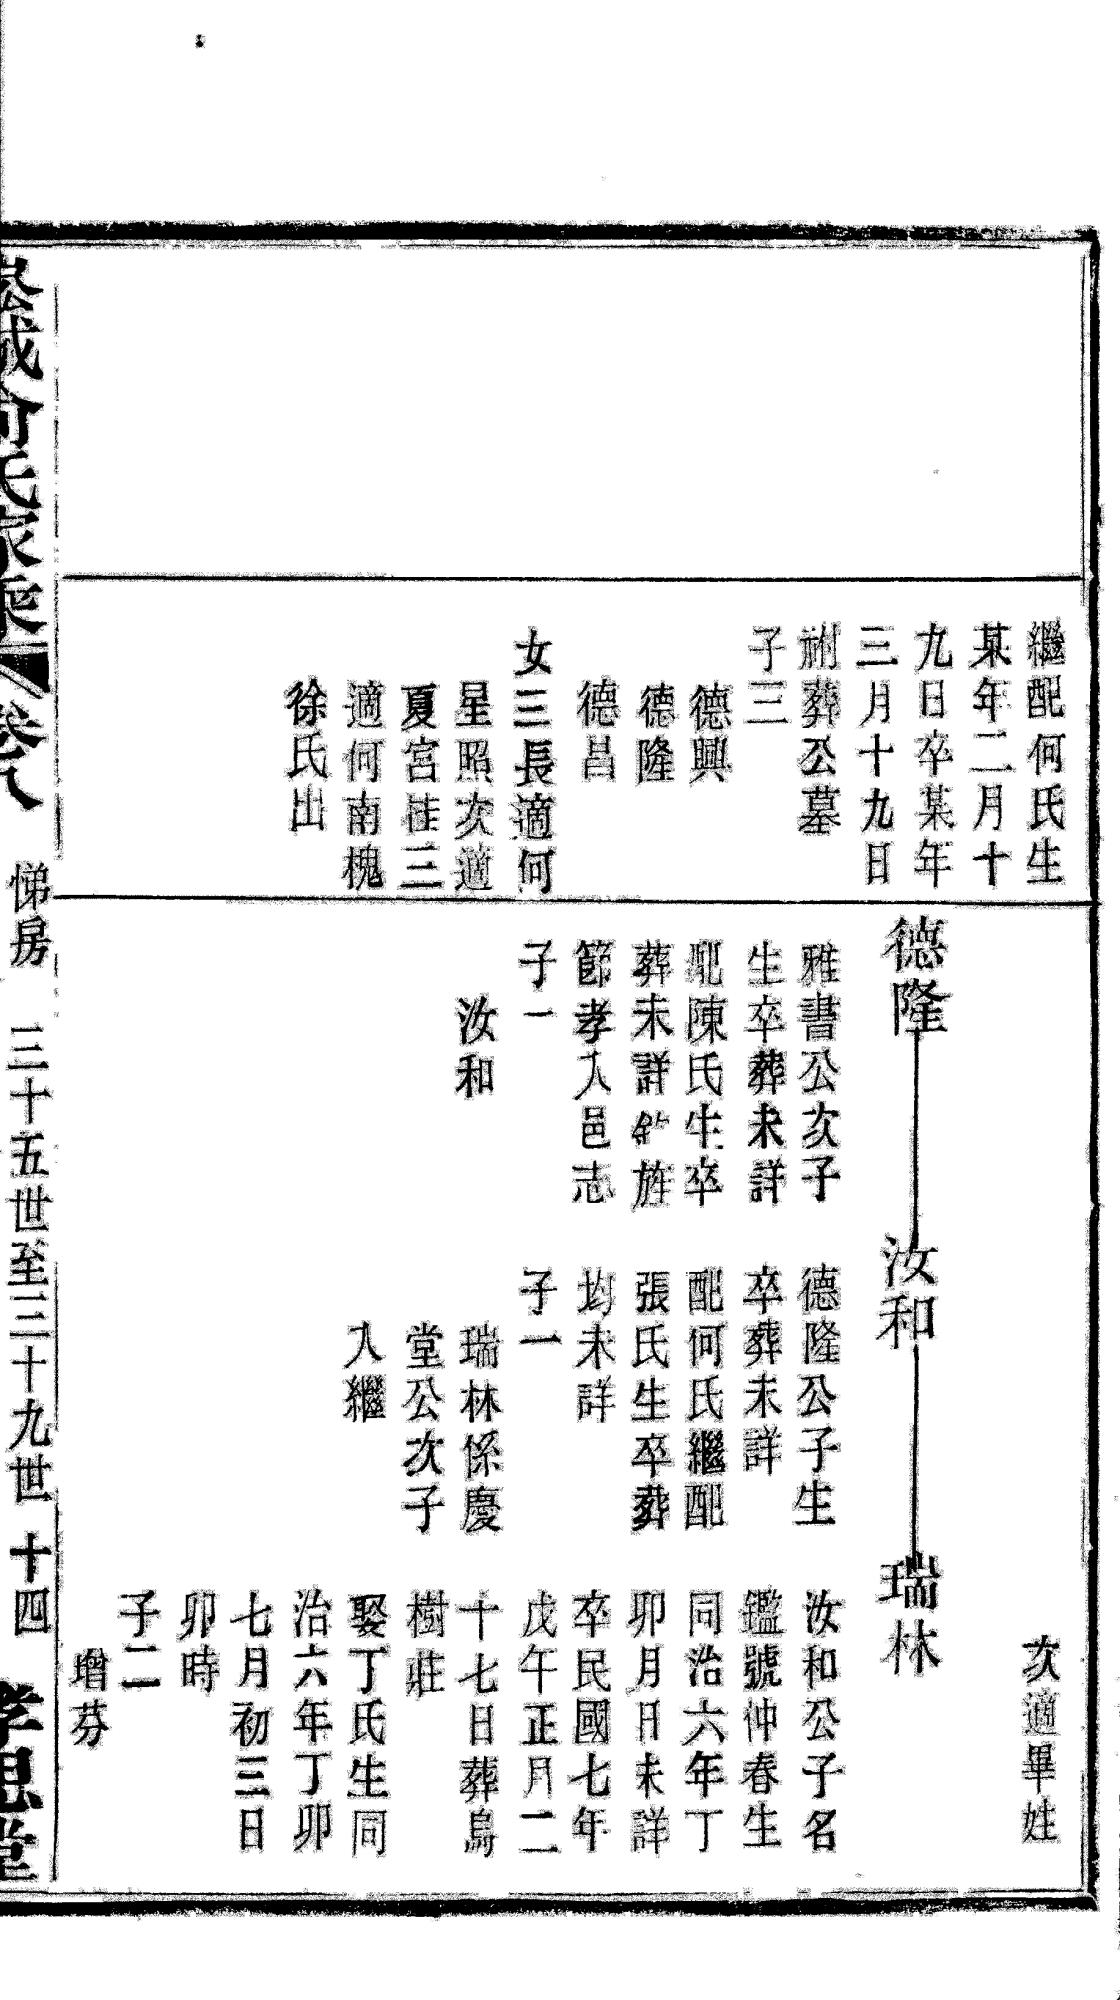 繼配何氏生
某年二月十
九日卒某年
三月十九日
祔葬公墓
子三
德興
德隆
德昌
女三長適何
星照次適
夏宮桂三
適何南槐
徐氏出
次適畢姓
德隆
雅書公次子
生卒葬未詳
配陳氏生卒
葬未詳 旌
節孝入邑志
子一
汝和
汝和
德隆公子生
卒葬未詳
配何氏繼配
張氏生卒葬
均未詳
子一
瑞林係慶
堂公次子
入繼
瑞林
汝和公子名
鑑號仲春生
同治六年丁
卯月日未詳
卒民國七年
戊午正月二
十七日葬烏
樹莊
娶丁氏生同
治六年丁卯
七月初三日
卯時
子二
增芬
城何氏家乘 卷八 悌房 三十五世至三十九世 十四 孝思堂